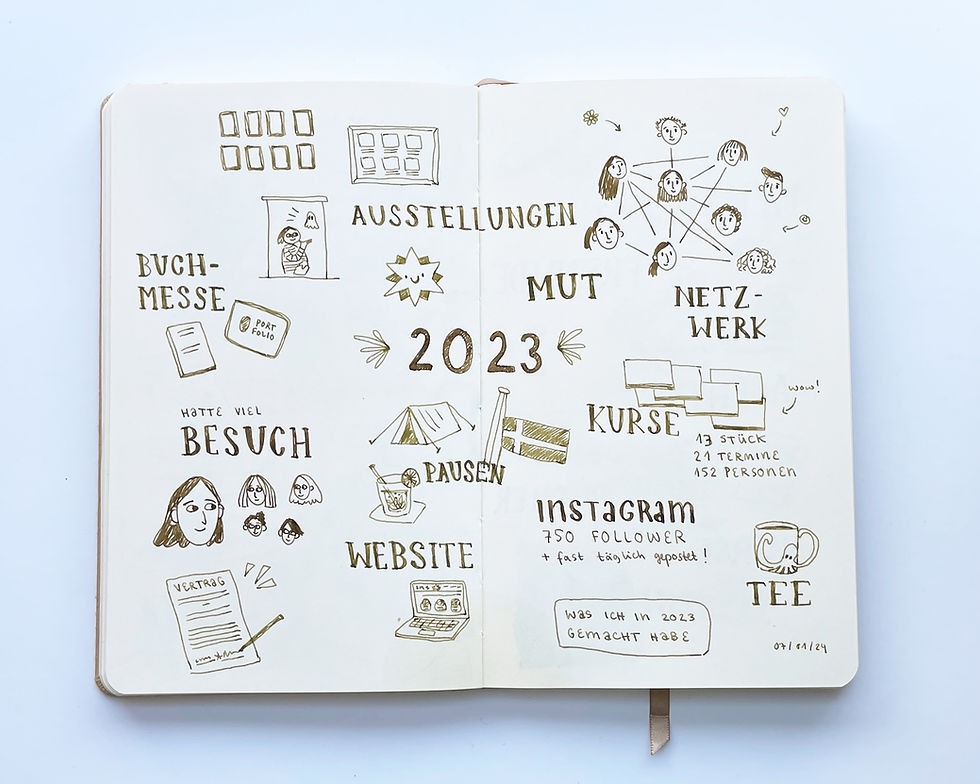 AUSSTELLUNGEN
BUCH-
MESSE
PORT
FOLIO
MUT
NETZ-
WERK
2023
HATTE VIEL
BESUCH
PAUSEN
KURSE
wow!
13 STÜCK
21 TERMINE
152 PERSONEN
INSTAGRAM
750 FOLLOWER
+ fast täglich gepostet!
WEBSITE
VERTRAG
TEE
WAS ICH IN 2023
GEMACHT HABE
07/01/24